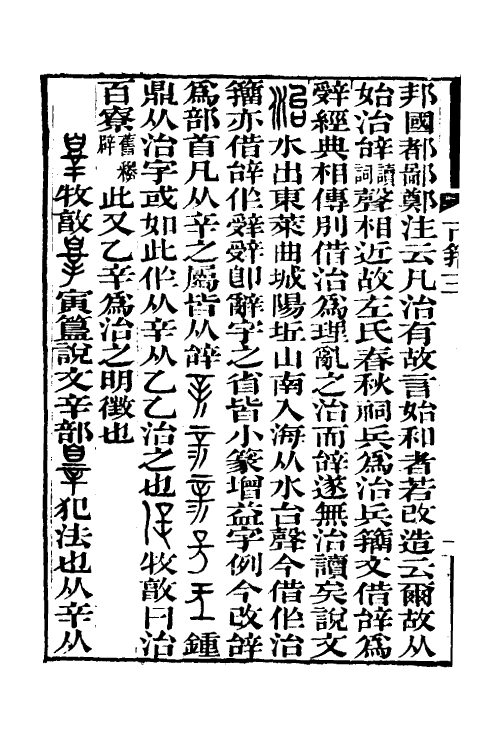 邦國都鄙鄭注云凡治有故言始和者若改造云爾故从
始治辝讀詞聲相近故左氏春秋祠兵爲治兵籒文借辝爲
辤經典相傳別借治爲理亂之治而辝遂無治讀矣說文
治水出東萊曲城陽丘山南入海从水台聲今借作治
籒亦借辝作辤辤卽辭字之省皆小篆增益字例今改辝
爲部首凡从辛之屬皆从辝
鼎从治字或如此作从辛从乙乙治之也 牧敦曰治
百寮舊釋辟此又乙辛爲治之明徵也
辠牧敦辠寅簋說文辛部辠犯法也从辛从
古籒三